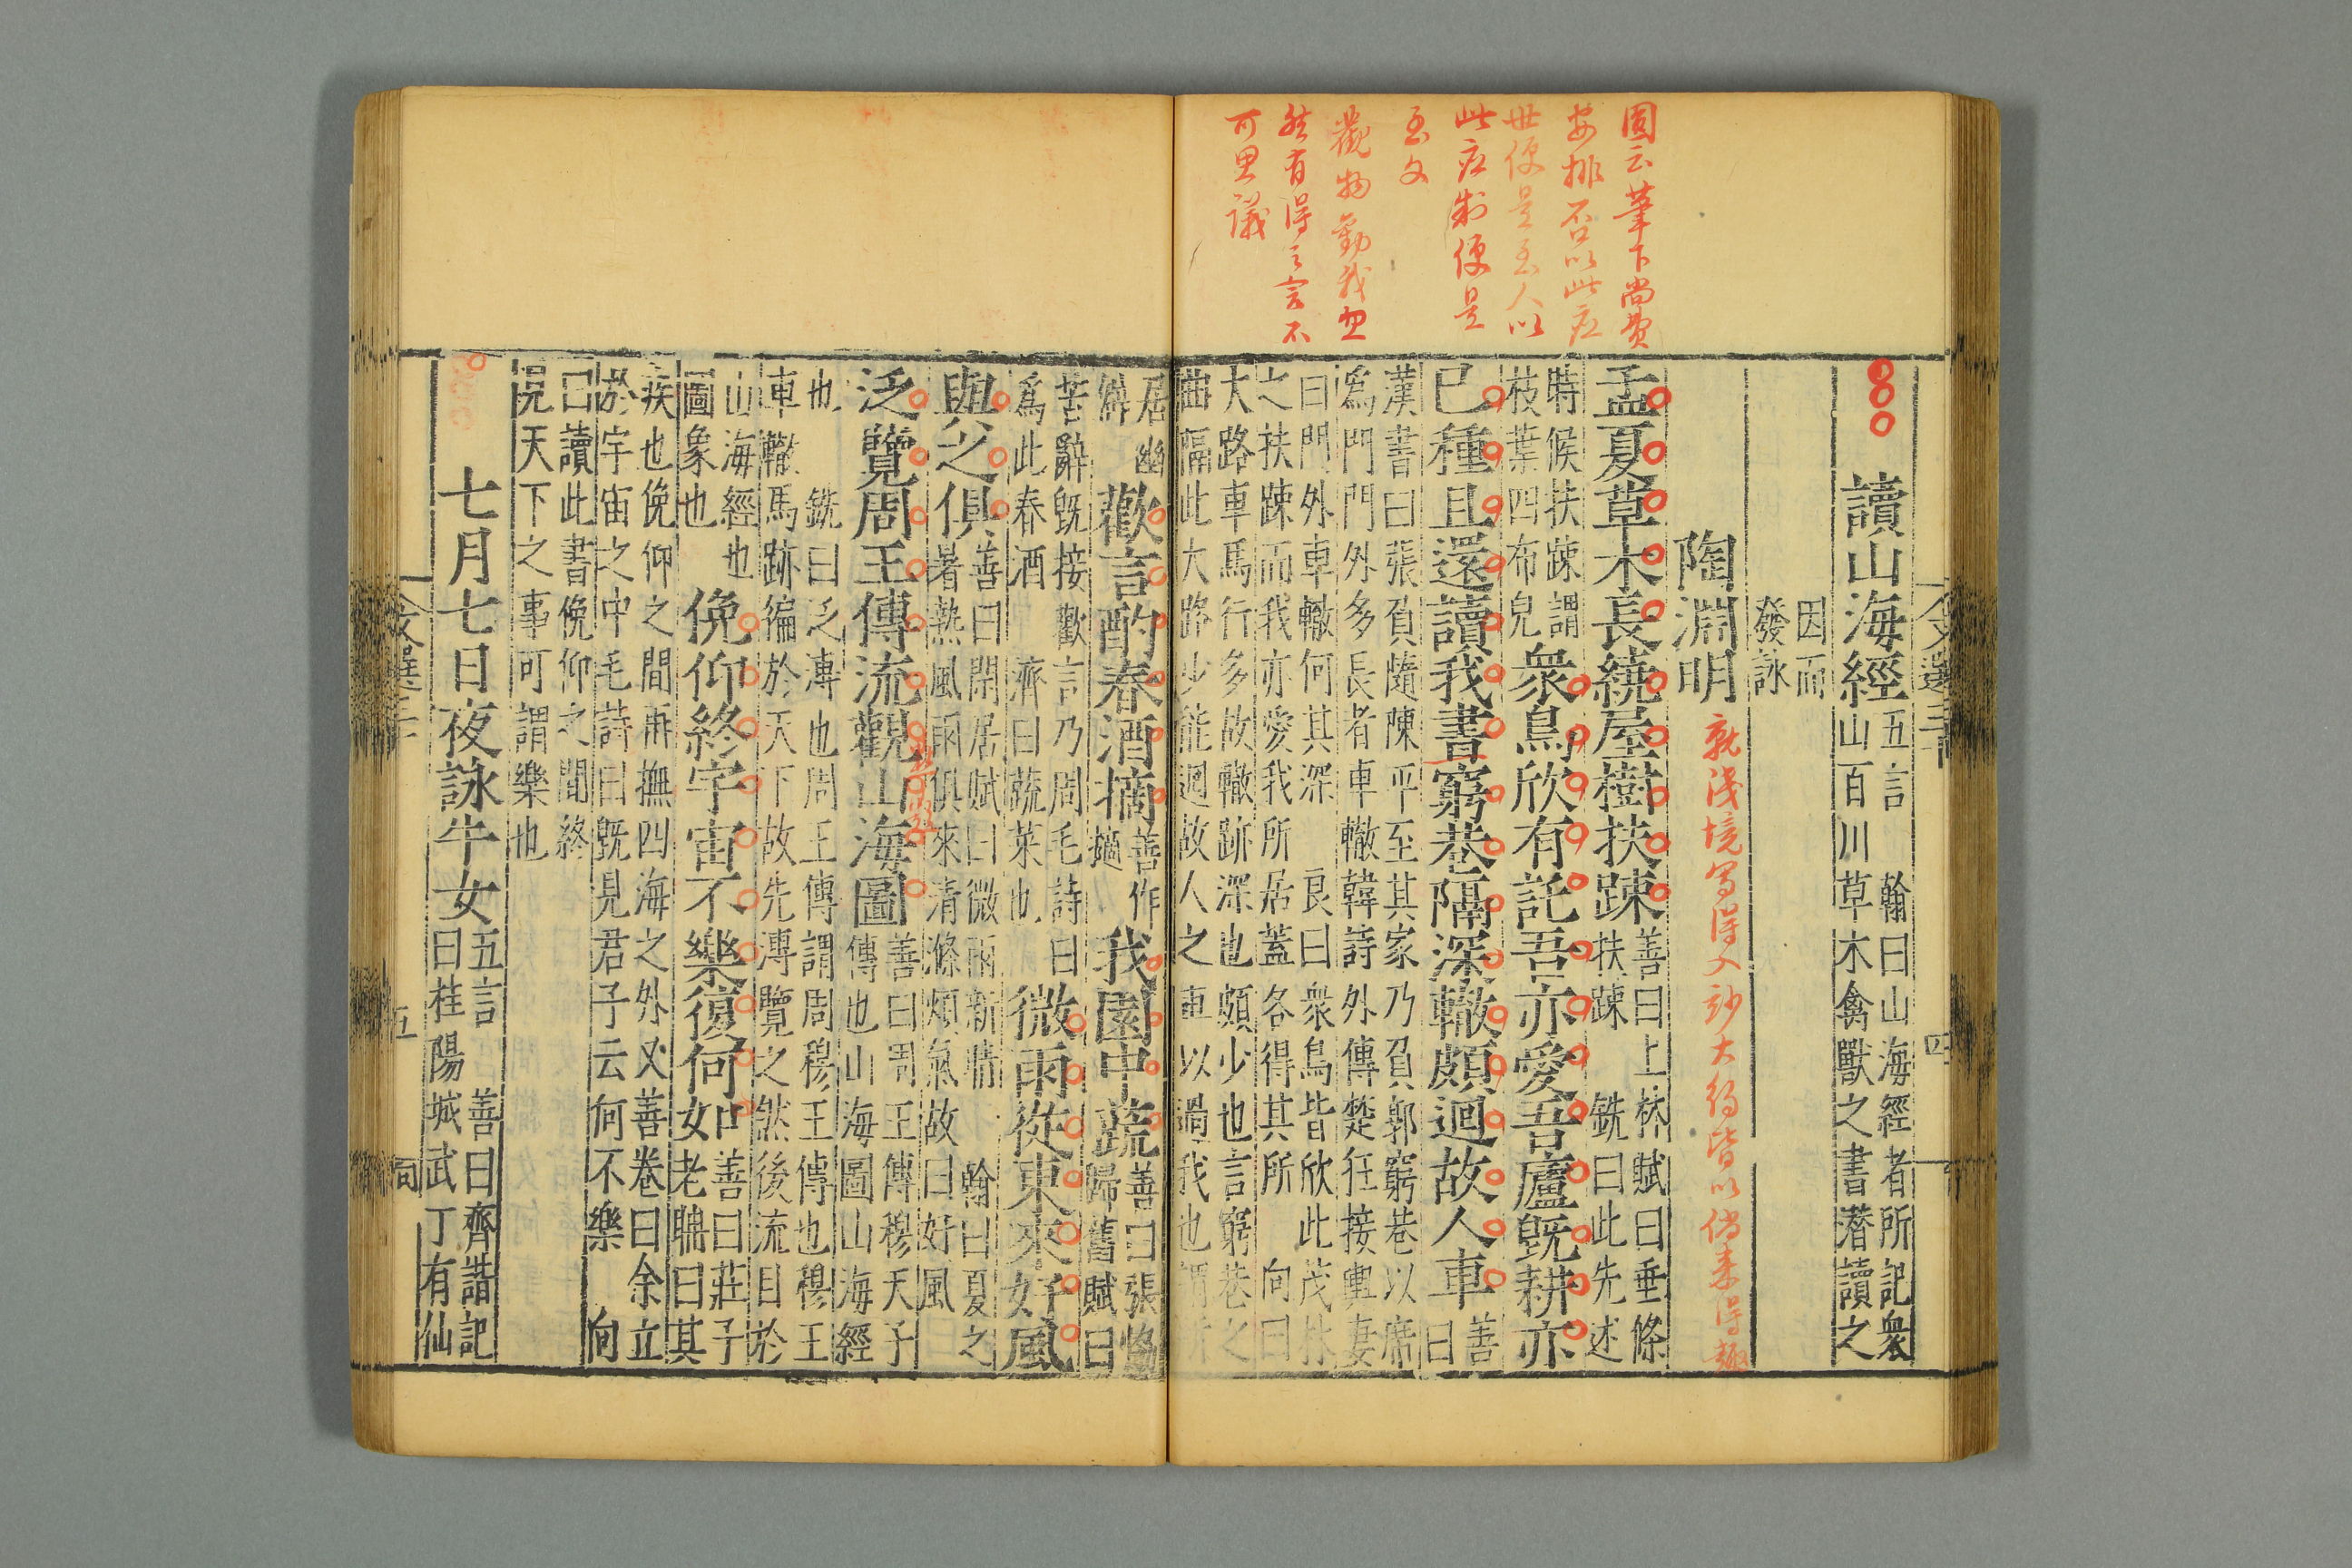 圈云筆下尚費
安排否以此應
世便是至人以
此應制便是
至文
觀物動我忽
然有得之言不
可思議
文選三十
四
讀山海經五言
翰曰山海經者所記衆
山百川草木禽獸之書潛讀之
因而
發詠
陶淵明
就淺境寫得入妙大約皆以偶來得趣
孟夏草木長繞屋樹扶踈
善曰上林賦曰垂條
扶踈
銑曰此先述
時候扶踈謂
枝葉四布皃
衆鳥欣有託吾亦愛吾廬旣耕亦
已種且還讀我書窮巷隔深轍頗迴故人車
善
曰
漢書曰張負隨陳平至其家乃負郭窮巷以席
爲門門外多長者車轍韓詩外傳楚狂接輿妻
曰門外車轍何其深 良曰衆鳥皆欣此茂林
之扶踈而我亦愛我所居蓋各得其所 向曰
大路車馬行多故轍跡深也頗少也言窮巷之
曲隔此大路少能迴故人之車以過我也
居幽
僻
歡言酌春酒摘
善作
擿
我園中蔬
善曰張協
歸舊賦曰
苦辭旣接歡言乃周毛詩曰
爲此春酒 濟曰蔬菜也
微雨從東來好風
與之俱
善曰閑居賦曰微雨新晴
翰曰夏之
暑熱風雨俱來清滌煩氣故曰好風
泛覽周王傳流觀山海圖
善曰周王傳穆天子
傳也山海圖山海經
也 銑曰泛溥也周王傳謂周穆王傳也穆王
車轍馬跡徧於天下故先溥覽之然後流目於
山海經也
圖象也
俛仰終宇宙不樂復何
如善曰莊子
女老聃曰其
疾也俛仰之間再撫四海之外又善卷曰余立
於宇宙之中毛詩曰旣見君子云何不樂 向
曰讀此書俛仰之閒終
見天下之事可謂樂也
七月七日夜詠牛女五言
善曰齊諧記
曰桂陽城武丁有仙
文選三十
五